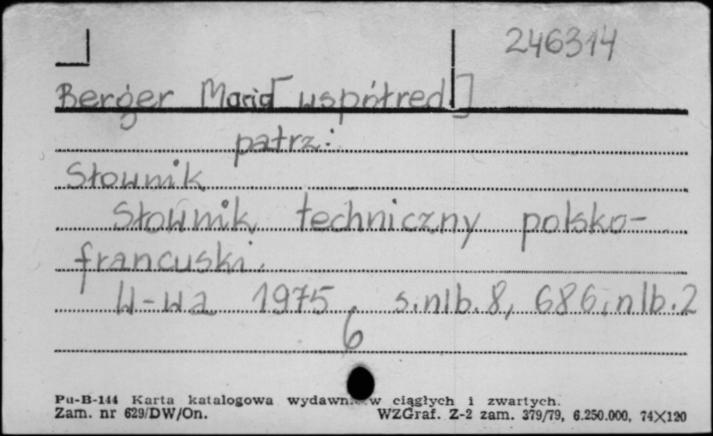 246314
Berger Maria [współred.]
patrz:
Słownik
Słownik techniczny polsko-
francuski.
W-wa 1975, s.nlb. 8, 686, nlb. 2
6
Pu-B-144 Karta katalogowa wydawn. w ciągłych i zwartych.
Zam. nr 629/DW/On. WZGraf. Z-2 zam. 379/79, 6.250.000, 74X120